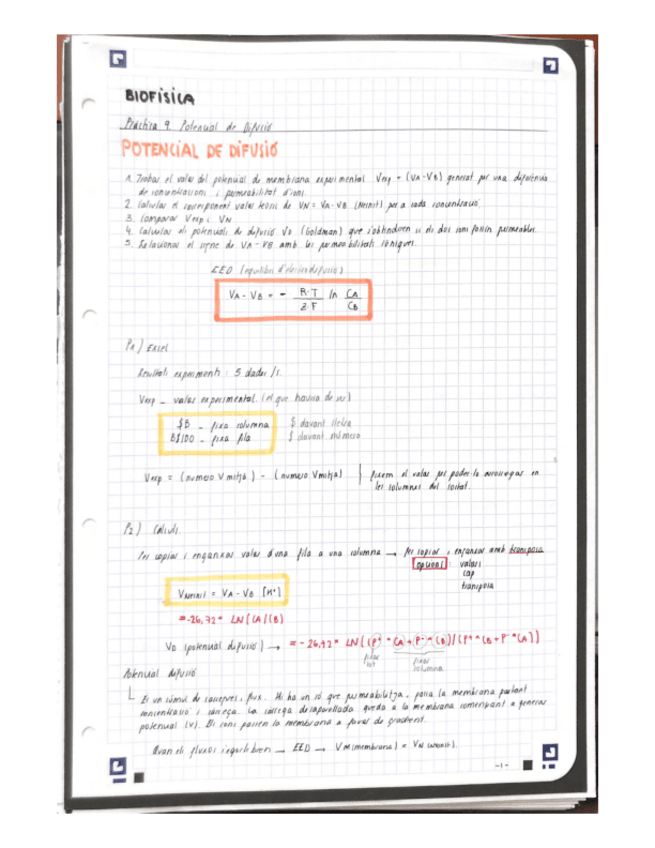 BIOFÍSICA
Pràctica 9. Potencial de Difusió
POTENCIAL DE DIFUSIÓ
1. Trobar el valor del potencial de membrana experimental Vexp = (VA-VB) generat per una diferència
de concentracions i permeabilitat d'ions.
2. Calcular el corresponent valor teòric de VN = VA-VB (Nernst) per a cada concentració.
3. Comparar Vexp i VN
4. Calcular els potencials de difusió VD (Goldman) que s'obtindrien si els dos ions fossin permeables.
5. Relacionar el signe de VA-VB amb les permeabilitats iòniques.
EED (equilibri d'electrodifusió)
VA - VB = - R·T / Z·F ln CA / CB
P1) Excel
Resultats experiments: 5 dades /s.
Vexp - valor experimental. (el que hauria de ser)
$B - fixa columna $ davant lletra
B$100 - fixa fila $ davant número
Vexp = (numero Vmitja) - (numero Vmitja) fixem el valor per poder-lo arrossegar en
les columnes del costat.
P2) Càlculs.
Per copiar i enganxar valor d'una fila a una columna → fer copiar i enganxar amb transposa
opcions: valors
cap
transposa
VNernst = VA - VB [K+]
=-26,72 * LN(CA/CB)
VD (potencial difusió) → = -26,72 * LN((P+ * CA + P- * CB)/(P+ * CB + P- * CA))
fixar
tot
fixar
columna
Potencial difusió
És un cúmul de càrregues i flux. Hi ha un ió que permeabilitza, passa la membrana portant
concentració i càrrega. La càrrega desaparellada queda a la membrana començant a generar
potencial (V). Els ions passen la membrana a favor de gradient.
Quan els fluxos s'equilibren → EED → VM (membrana) = VN (Nernst).
-1-